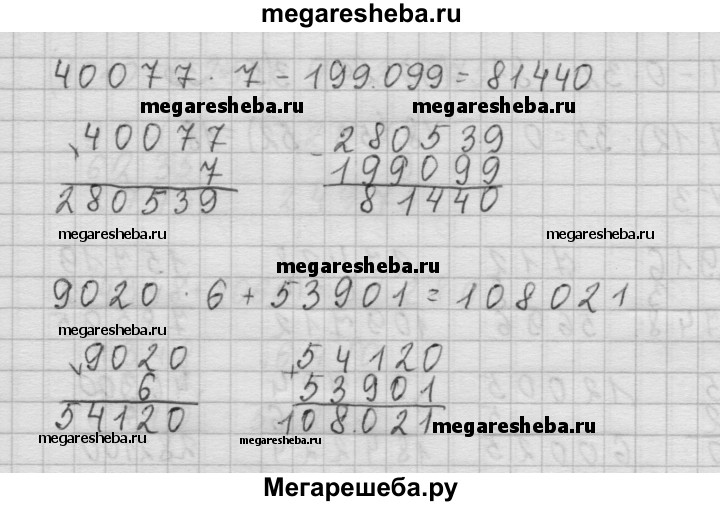 megaresheba.ru
40077 · 7 - 199.099 = 81440
megaresheba.ru megaresheba.ru
40077 280539
7 - 199099
280539 81440
megaresheba.ru megaresheba.ru
megaresheba.ru
9020 · 6 + 53901 = 108021
megaresheba.ru
9020 54120
6 + 53901
54120 108.021 megaresheba.ru
megaresheba.ru megaresheba.ru
Мегарешеба.ру